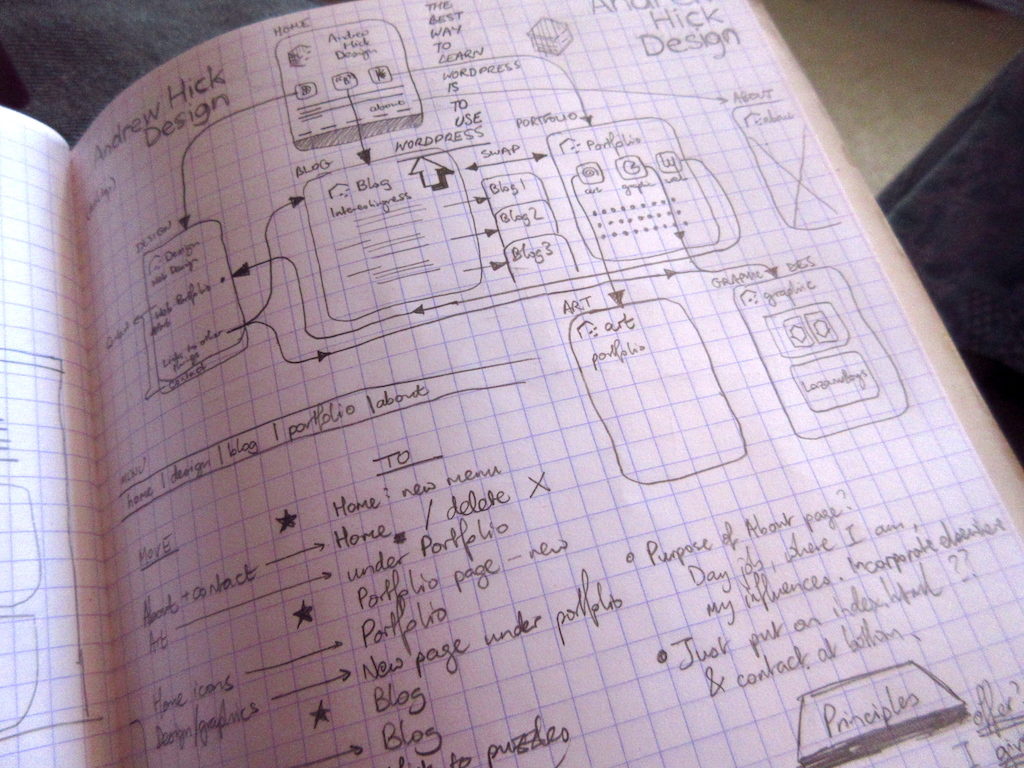 Andrew Hick
Design
HOME
Andrew
Hick
Design
about
THE
BEST
WAY
TO
LEARN
WORDPRESS
IS
TO
USE
WORDPRESS
Hick
Design
ABOUT
about
BLOG
Blog
Interestingness
SWAP
Blog1
Blog2
Blog3
PORTFOLIO
Portfolio
art
graph
web
DESIGN
Design
Web Design
Web Portfolio
Links to other
ART
art
portfolio
GRAPHIC DES
graphic
MENU
home | design | blog | portfolio | about
MOVE
TO
★ Home: new menu
About + contact → Home / delete X
Art → under Portfolio
★ Portfolio page – new
Home icons → Portfolio
Design/graphics → New page under portfolio
★ Blog
→ Blog
to puzzles
Purpose of About page?
Day job, where I am,
my influences. Incorporate elsewhere
??
Just put on index.html
& contact at bottom.
Principles
offer?
I